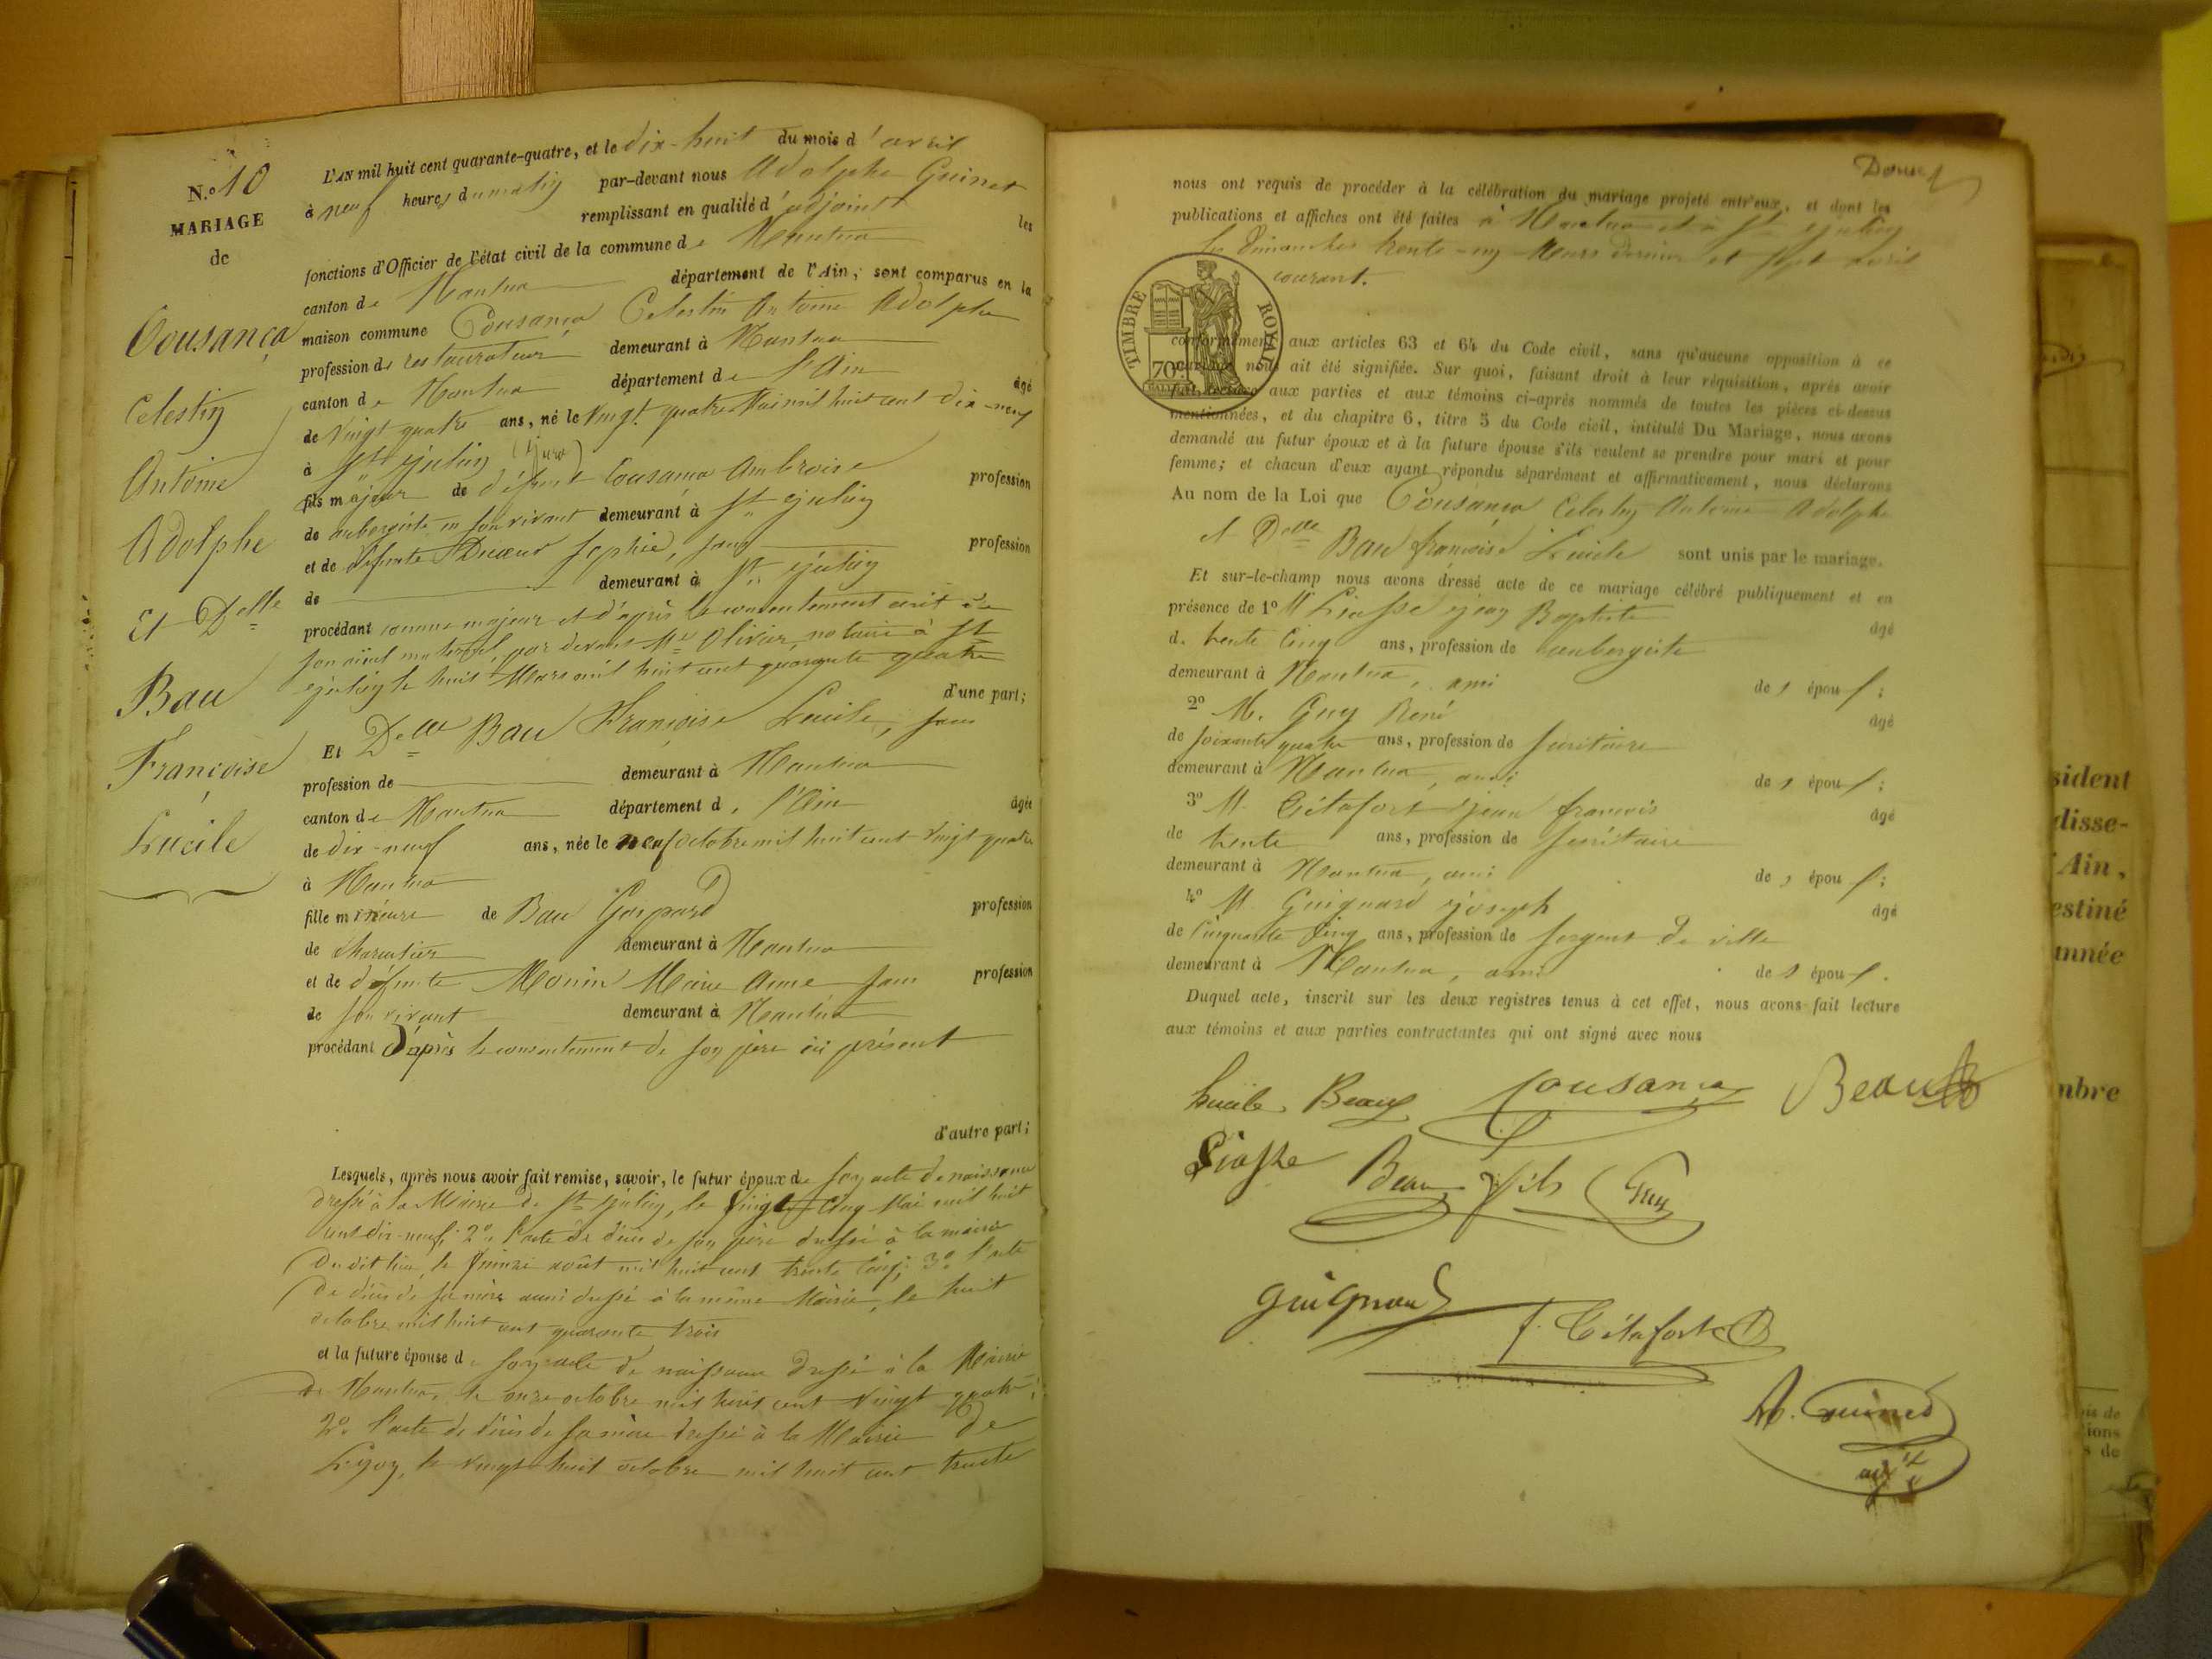 N.º 10
MARIAGE
de
Cousança
Celestin
Antoine
Adolphe
Et Delle
Bau
Françoise
Lucile
L'AN mil huit cent quarante-quatre, et le dix-huit du mois d'avril
à neuf heures du matin par-devant nous Adolphe Guinet
remplissant en qualité d'adjoint les
fonctions d'Officier de l'état civil de la commune de Nantua
canton de Nantua département de l'Ain, sont comparus en la
maison commune Cousança Celestin Antoine Adolphe
profession de restaurateur demeurant à Nantua
canton de Nantua département de l'Ain âgé
de vingt quatre ans, né le vingt quatre Mai mil huit cent dix-neuf
à St Julien (Jura)
fils majeur de défunt Cousança Ambroise profession
de aubergiste en son vivant demeurant à St Julien
et de défunte Sophie, sans profession
de demeurant à St Julien
procédant comme majeur et d'après le consentement écrit de
son aïeul maternel, par devant Me Olivier, notaire à St
Julien le huit Mars mil huit cent quarante quatre
d'une part;
Et Delle Bau Françoise Lucile, sans
profession de demeurant à Nantua
canton de Nantua département d. l'Ain âgée
de dix-neuf ans, née le neuf octobre mil huit cent vingt quatre
à Nantua
fille mineure de Bau Gaspard profession
de charcutier demeurant à Nantua
et de défunte Monin Marie Anne sans profession
de son vivant demeurant à Nantua
procédant D'après le consentement de son père ici présent
d'autre part;
Lesquels, après nous avoir fait remise, savoir, le futur époux de son acte de naissance
dressé à la Mairie de St Julien, le vingt cinq Mai mil huit
cent dix-neuf; 2º l'acte de décès de son père dressé à la mairie
du dit lieu, le août mil huit cent trente cinq; 3º l'acte
de décès de sa mère aussi dressé à la même Mairie, le huit
octobre mil huit cent quarante trois
et la future épouse de son acte de naissance dressé à la Mairie
de Nantua, le onze octobre mil huit cent vingt quatre;
2º l'acte de décès de sa mère dressé à la Mairie de
Lyon, le vingt-huit octobre mil huit cent trente
nous ont requis de procéder à la célébration du mariage projeté entr'eux, et dont les
publications et affiches ont été faites à Nantua et à St Julien
les dimanches trente-un Mars dernier et sept avril
courant.
TIMBRE ROYAL
70c
conformément aux articles 63 et 64 du Code civil, sans qu'aucune opposition à ce
mariage nous ait été signifiée. Sur quoi, faisant droit à leur réquisition, après avoir
fait lecture aux parties et aux témoins ci-après nommés de toutes les pièces ci-dessus
mentionnées, et du chapitre 6, titre 5 du Code civil, intitulé Du Mariage, nous avons
demandé au futur époux et à la future épouse s'ils veulent se prendre pour mari et pour
femme; et chacun d'eux ayant répondu séparément et affirmativement, nous déclarons
Au nom de la Loi que Cousança Celestin Antoine Adolphe
et Delle Bau françoise Lucile sont unis par le mariage.
Et sur-le-champ nous avons dressé acte de ce mariage célébré publiquement et en
présence de 1º M Jean Baptiste âgé
d. trente cinq ans, profession de aubergiste
demeurant à Nantua, ami de s épou x;
2º M. Guy René âgé
de soixante quatre ans, profession de secrétaire
demeurant à Nantua, ami de s épou x;
3º M. Cétafort Jean françois âgé
de trente ans, profession de secrétaire
demeurant à Nantua, ami de s épou x;
4º M. Guignard Joseph âgé
de Cinquante cinq ans, profession de sergent de ville
demeurant à Nantua, ami de s épou x.
Duquel acte, inscrit sur les deux registres tenus à cet effet, nous avons fait lecture
aux témoins et aux parties contractantes qui ont signé avec nous
Lucile Beau Cousança Beau
Beau fils Guy
Guignard
J. Cétafort
A. Guinet
adjt
sident
disse-
Ain,
estiné
année
mbre